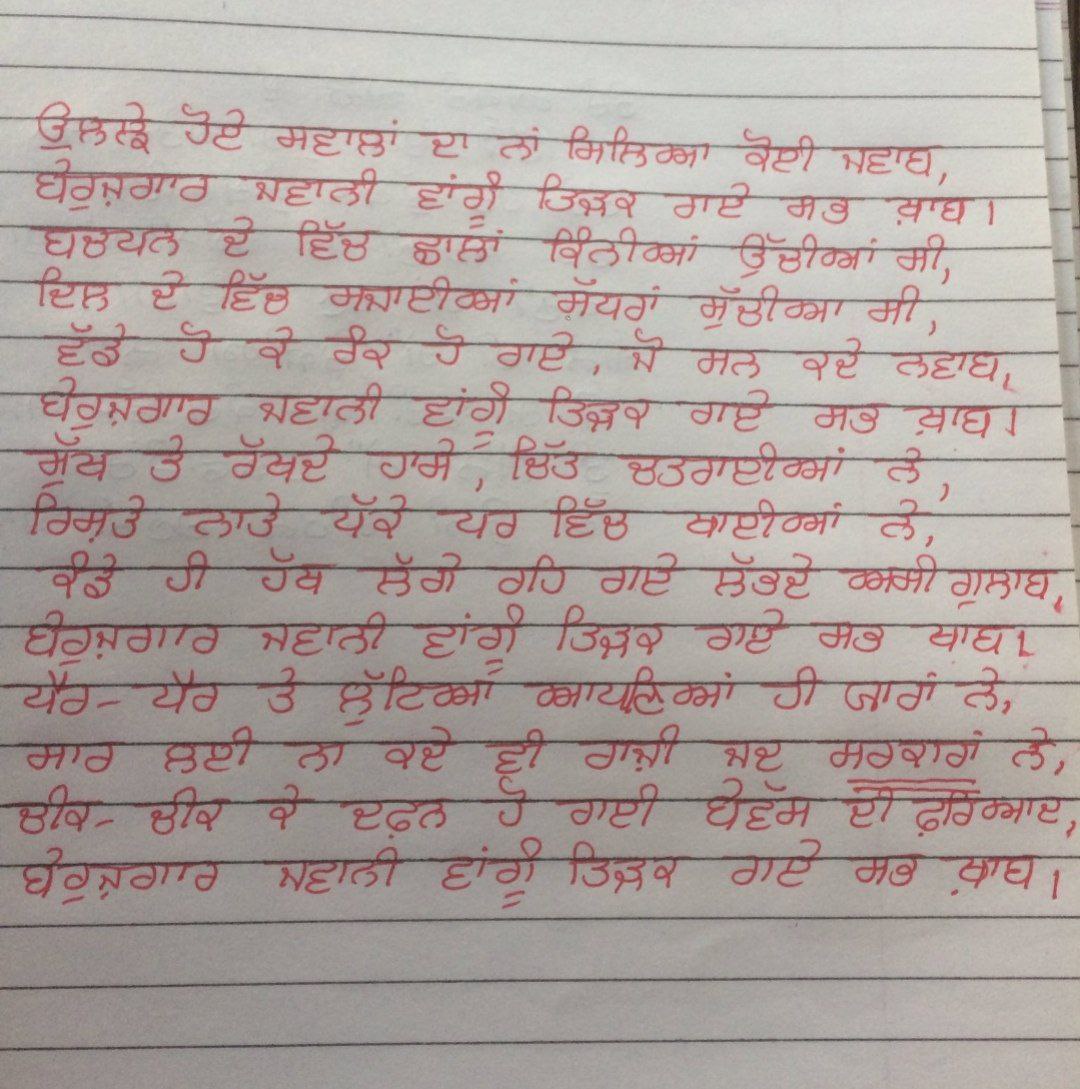 ਉਲਝੇ ਹੋਏ ਸਵਾਲਾਂ ਦਾ ਨਾਂ ਮਿਲਿਆ ਕੋਈ ਜਵਾਬ,
ਬੇਰੁਜ਼ਗਾਰ ਜਵਾਨੀ ਵਾਂਗੂੰ ਤਿੜਕ ਗਏ ਸਭ ਖ਼ਾਬ।
ਬਚਪਨ ਦੇ ਵਿੱਚ ਛਾਲਾਂ ਕਿੰਨੀਆਂ ਉੱਚੀਆਂ ਸੀ,
ਦਿਲ ਦੇ ਵਿੱਚ ਸਜਾਈਆਂ ਸ਼ੱਧਰਾਂ ਸੁੱਚੀਆ ਸੀ,
ਵੱਡੇ ਹੋ ਕੇ ਰੰਕ ਹੋ ਗਏ, ਜੋ ਸਨ ਕਦੇ ਨਵਾਬ,
ਬੇਰੁਜ਼ਗਾਰ ਜਵਾਨੀ ਵਾਂਗੂੰ ਤਿੜਕ ਗਏ ਸਭ ਖ਼ਾਬ।
ਮੁੱਖ ਤੇ ਰੱਖਦੇ ਹਾਸੇ, ਚਿੱਤ ਚਤਰਾਈਆਂ ਨੇ,
ਰਿਸ਼ਤੇ ਨਾਤੇ ਪੱਕੇ ਪਰ ਵਿੱਚ ਖਾਈਆਂ ਨੇ,
ਕੰਡੇ ਹੀ ਹੱਥ ਲੱਗੇ ਰਹਿ ਗਏ ਲੱਭਦੇ ਅਸੀ ਗੁਲਾਬ,
ਬੇਰੁਜ਼ਗਾਰ ਜਵਾਨੀ ਵਾਂਗੂੰ ਤਿੜਕ ਗਏ ਸਭ ਖਾਬ।
ਪੈਰ-ਪੈਰ ਤੇ ਲੁੱਟਿਆ ਆਪਣਿਆਂ ਹੀ ਯਾਰਾਂ ਨੇ,
ਸਾਰ ਲਈ ਨਾ ਕਦੇ ਵੀ ਰਾਜ਼ੀ ਜਦ ਸਰਕਾਰਾਂ ਨੇ,
ਚੀਕ-ਚੀਕ ਕੇ ਦਫ਼ਨ ਹੋ ਗਈ ਬੇਵੱਸ ਦੀ ਫ਼ਰਿਆਦ,
ਬੇਰੁਜ਼ਗਾਰ ਜਵਾਨੀ ਵਾਂਗੂੰ ਤਿੜਕ ਗਏ ਸਭ ਖ਼ਾਬ।